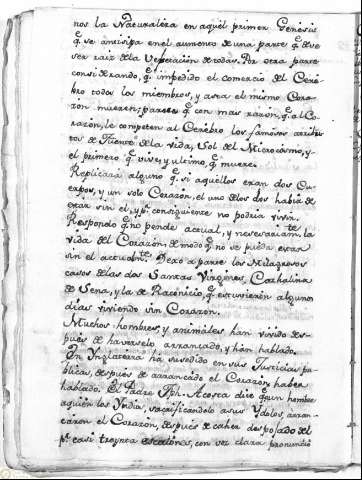 nos la Naturaleza en aquel primer Genesis
q.e se anticipa en el aumento de una parte q.e deve
ser raiz de la Vegetacion de todas. Por otra parte
considerando, q.e impedido el comercio del Cere-
bro todos los miembros, y asta el mismo Cora-
zón mueren; parece q.e con mas razon, q.e al Co-
razón, le competen al Cerebro los famosos atribu-
tos de Fuente de la vida, Sol del Microcosmo, y
el primero q.e vive, y ultimo, q.e muere.
Replicará alguno q.e si aquellos eran dos Cu-
erpos, y un solo Corazón, el uno de los dos habia de
estar sin el, y p.r consiguiente no podria vivir.
Respondo q.e no pende actual, y necesariam.te la
vida del Corazón de modo q.e no se pueda estar
sin el actualm.te Dexo a parte los Milagrosos
casos de las dos Santas Virgenes, Catholina
de Sena, y la de Raconicio, q.e estuvieron algunos
dias viviendo sin Corazón.
Muchos hombres, y animales han vivido des-
pués de haverselo arrancado, y han hablado.
En Ynglaterra ha sucedido en sus Justicias pu-
blicas, después de arrancado el Corazón haber
hablado. El Padre Jph. Acosta dice q.e un hombre
a quien los Yndios, sacrificandolo a sus Ydolos, arran-
caron el Corazón, después de caher despojado del
p.r casi treynta escalones, con voz clara pronunció